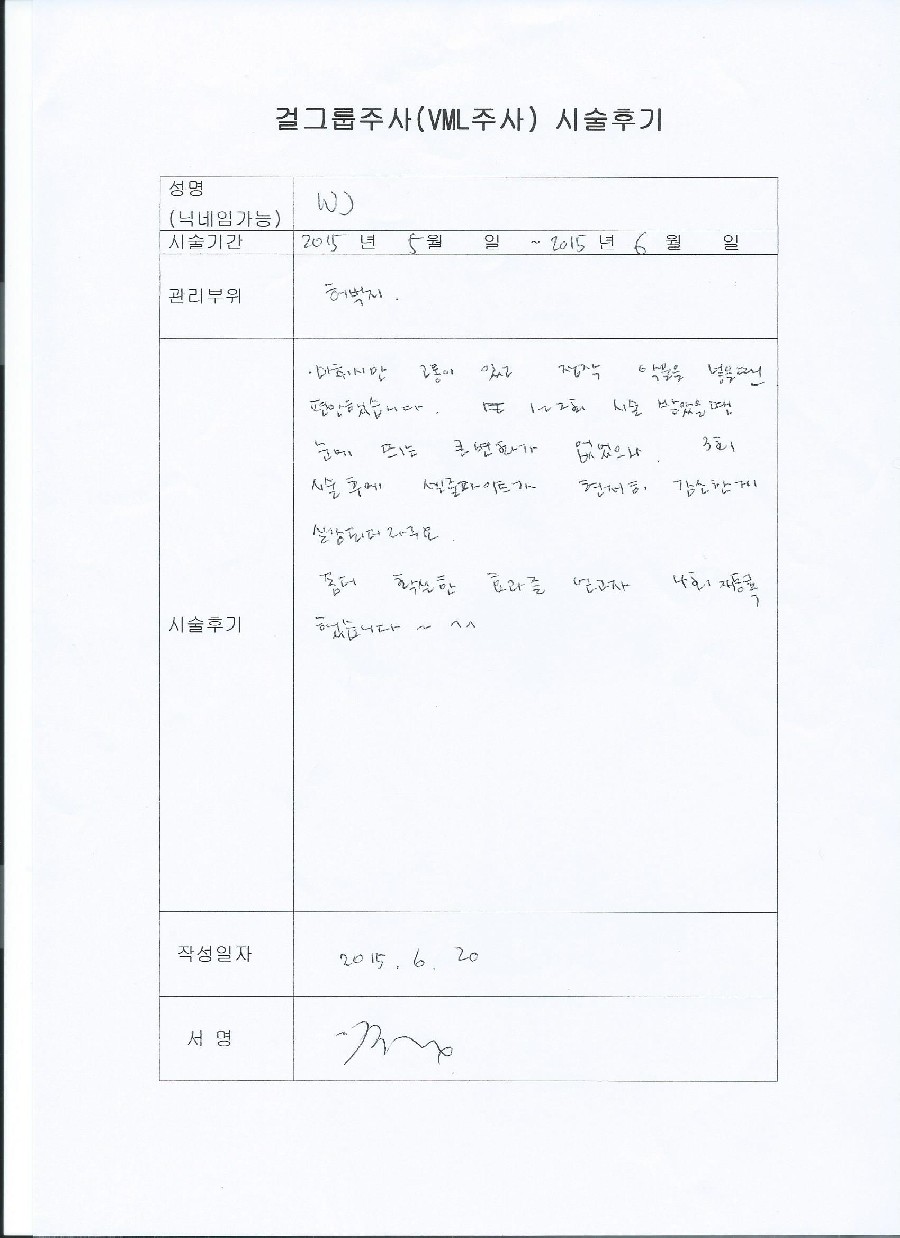 걸그룹주사(VML주사) 시술후기
성명
(닉네임가능)
WJ
시술기간
2015 년 5월 일 ~ 2015 년 6 월 일
관리부위
허벅지.
고통이 있고 정작 약물을 넣을때는
편안했습니다. 1~2회 시술 받았을땐
눈에 띄는 큰변화가 없었으나. 3회
시술후에 셀룰라이트가 현저히 감소한게
좀더 확실한 효과를 얻고자
했습니다 ~ ^^
시술후기
작성일자
2015. 6. 20
서 명